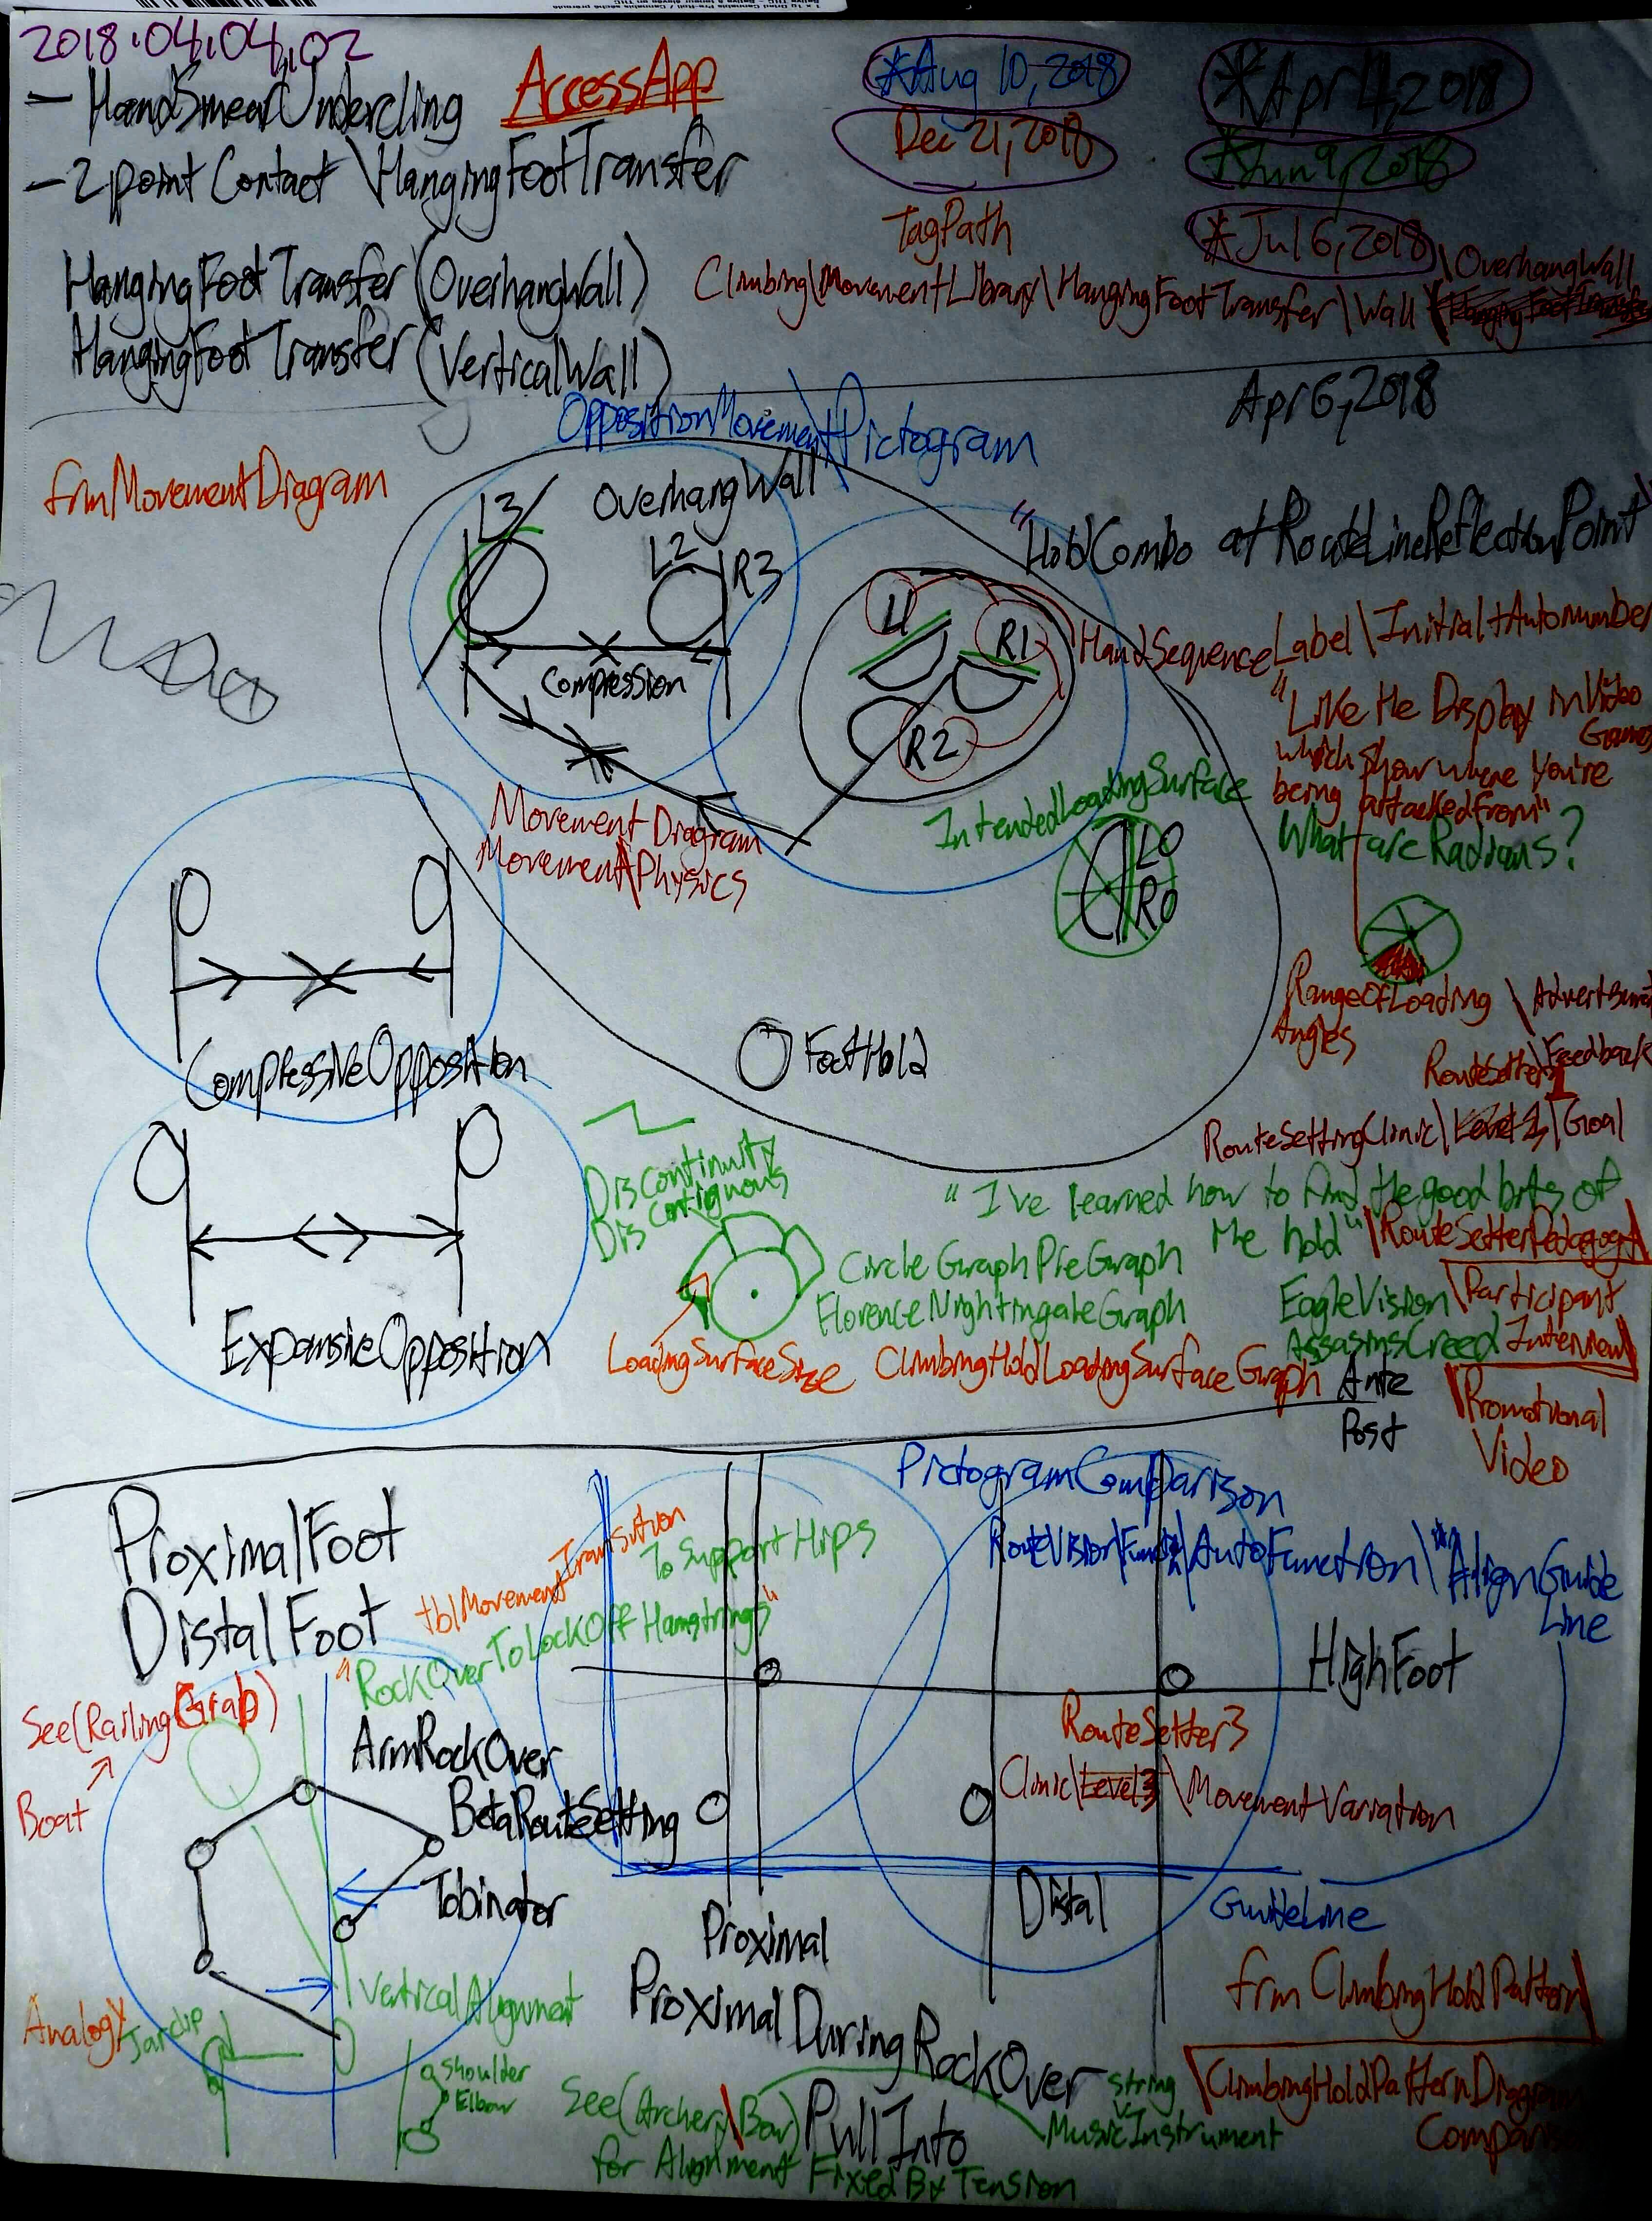 2018.04.04.02
- HandSmearUndercling
AccessApp
*Aug 10, 2018
*Apr 4, 2018
Dec 21, 2018
*Jun 9, 2018
- 2 point Contact \HangingFootTransfer
TagPath
*Jul 6, 2018
HangingFootTransfer (OverhangWall)
Climbing\MovementLibrary\HangingFootTransfer\Wall
\OverhangWall
HangingFootTransfer (VerticalWall)
Apr 6, 2018
OppositionMovement\Pictogram
frmMovementDiagram
L3
OverhangWall
L2
R3
Compression
"HoldCombo at RouteLineReflectionPoint"
L1
R1
R2
HandSequenceLabel\Initial+Autonumber
"Like the Display in Video
Games
which show where you're
being attacked from"
What are Radians?
Movement Diagram
Movement\Physics
IntendedLoadingSurface
L0
R0
RangeOfLoading
Angles
RouteSetter\Feedback
CompressiveOpposition
FootHold
RouteSettingClinic\Level 1\Goal
Discontinuity
Discontiguous
"I've learned how to find the good bits of
the hold"
\RouteSetterPedagogy
\Participant
Interview
CircleGraphPieGraph
FlorenceNightingaleGraph
EagleVision
AssasinsCreed
ExpansiveOpposition
LoadingSurfaceSize
ClimbingHoldLoadingSurfaceGraph
Ante
Post
\Promotional
Video
ProximalFoot
DistalFoot
tblMovementTransition
To Support Hips
"RockOverToLockOff Hamstrings"
PictogramComparison
AutoFunction\"AlignGuide
Line
HighFoot
See(RailingGrab)
Boat
ArmRockOver
BetaRouteSetting
Tobinator
RouteSetter3
Clinic\Level3\MovementVariation
Proximal
Distal
GuideLine
VerticalAlignment
Analogy
Jarclip
Shoulder
Elbow
ProximalDuringRockOver
PullInto
frmClimbingHoldPattern
\ClimbingHoldPatternDiagram
See(Archery\Bow)
for Alignment Fixed By Tension
String
MusicInstrument